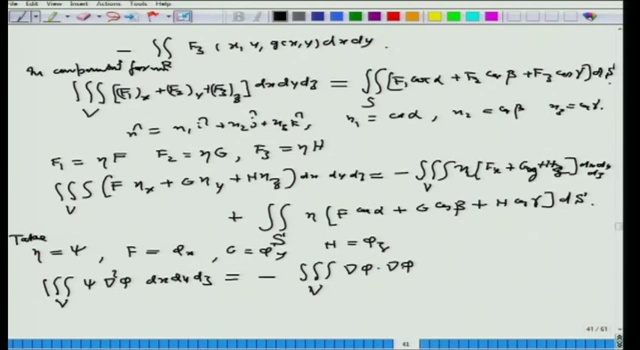 Edit View Insert Actions Tools Help
- ∬_R F₃ (x, y, g(x,y)) dx dy.
In component form
∭_V [(F₁)_x + (F₂)_y + (F₃)_z] dx dy dz = ∬_S [F₁ cos α + F₂ cos β + F₃ cos γ] dS.
n̂ = n₁ î + n₂ ĵ + n₃ k̂, n₁ = cos α, n₂ = cos β n₃ = cos γ.
F₁ = ηF F₂ = ηG, F₃ = ηH
∭_V (F η_x + G η_y + H η_z) dx dy dz = - ∭_V η [F_x + G_y + H_z] dx dy dz
+ ∬_S η [F cos α + G cos β + H cos γ] dS.
Take
η = ψ, F = φ_x, G = φ_y H = φ_z
∭_V ψ ∇²φ dx dy dz = - ∭_V ∇φ · ∇φ
41 / 61
41